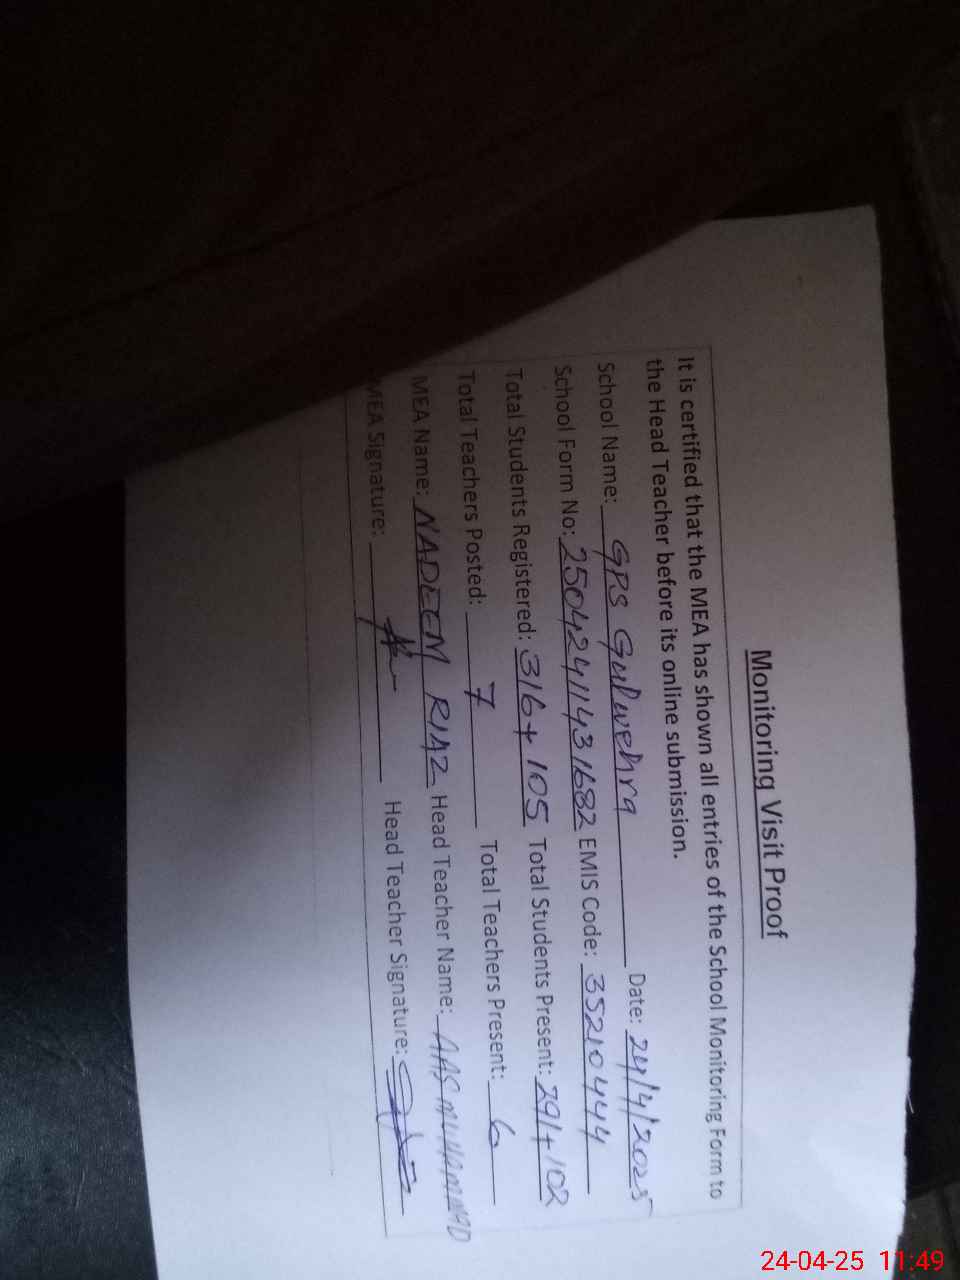 Monitoring Visit Proof
It is certified that the MEA has shown all entries of the School Monitoring Form to
the Head Teacher before its online submission.
School Name: GPS Gulwehra Date: 24/4/2025
School Form No: 25042411431682 EMIS Code: 35210444
Total Students Registered: 316+105 Total Students Present: 291+102
Total Teachers Posted: 7 Total Teachers Present: 6
MEA Name: NADEEM RIAZ Head Teacher Name: AAS MUHAMMAD
MEA Signature: Head Teacher Signature:
24-04-25 11:49